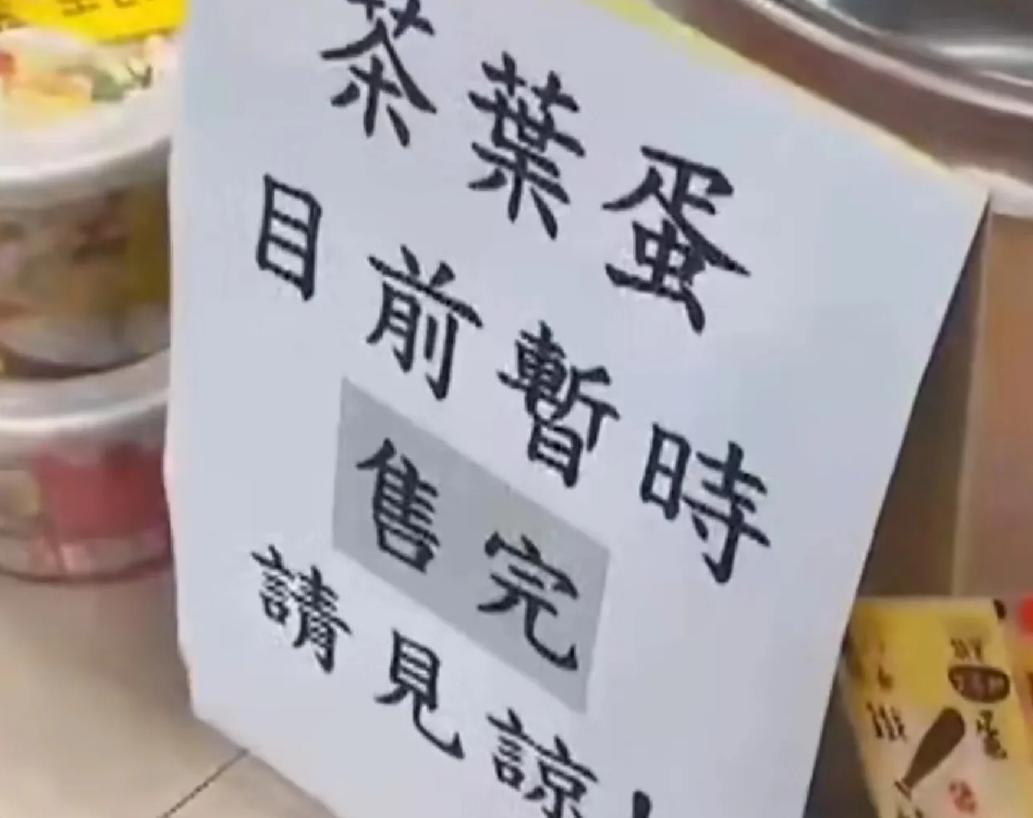 茶葉蛋
目前暫時
售完
請見諒!